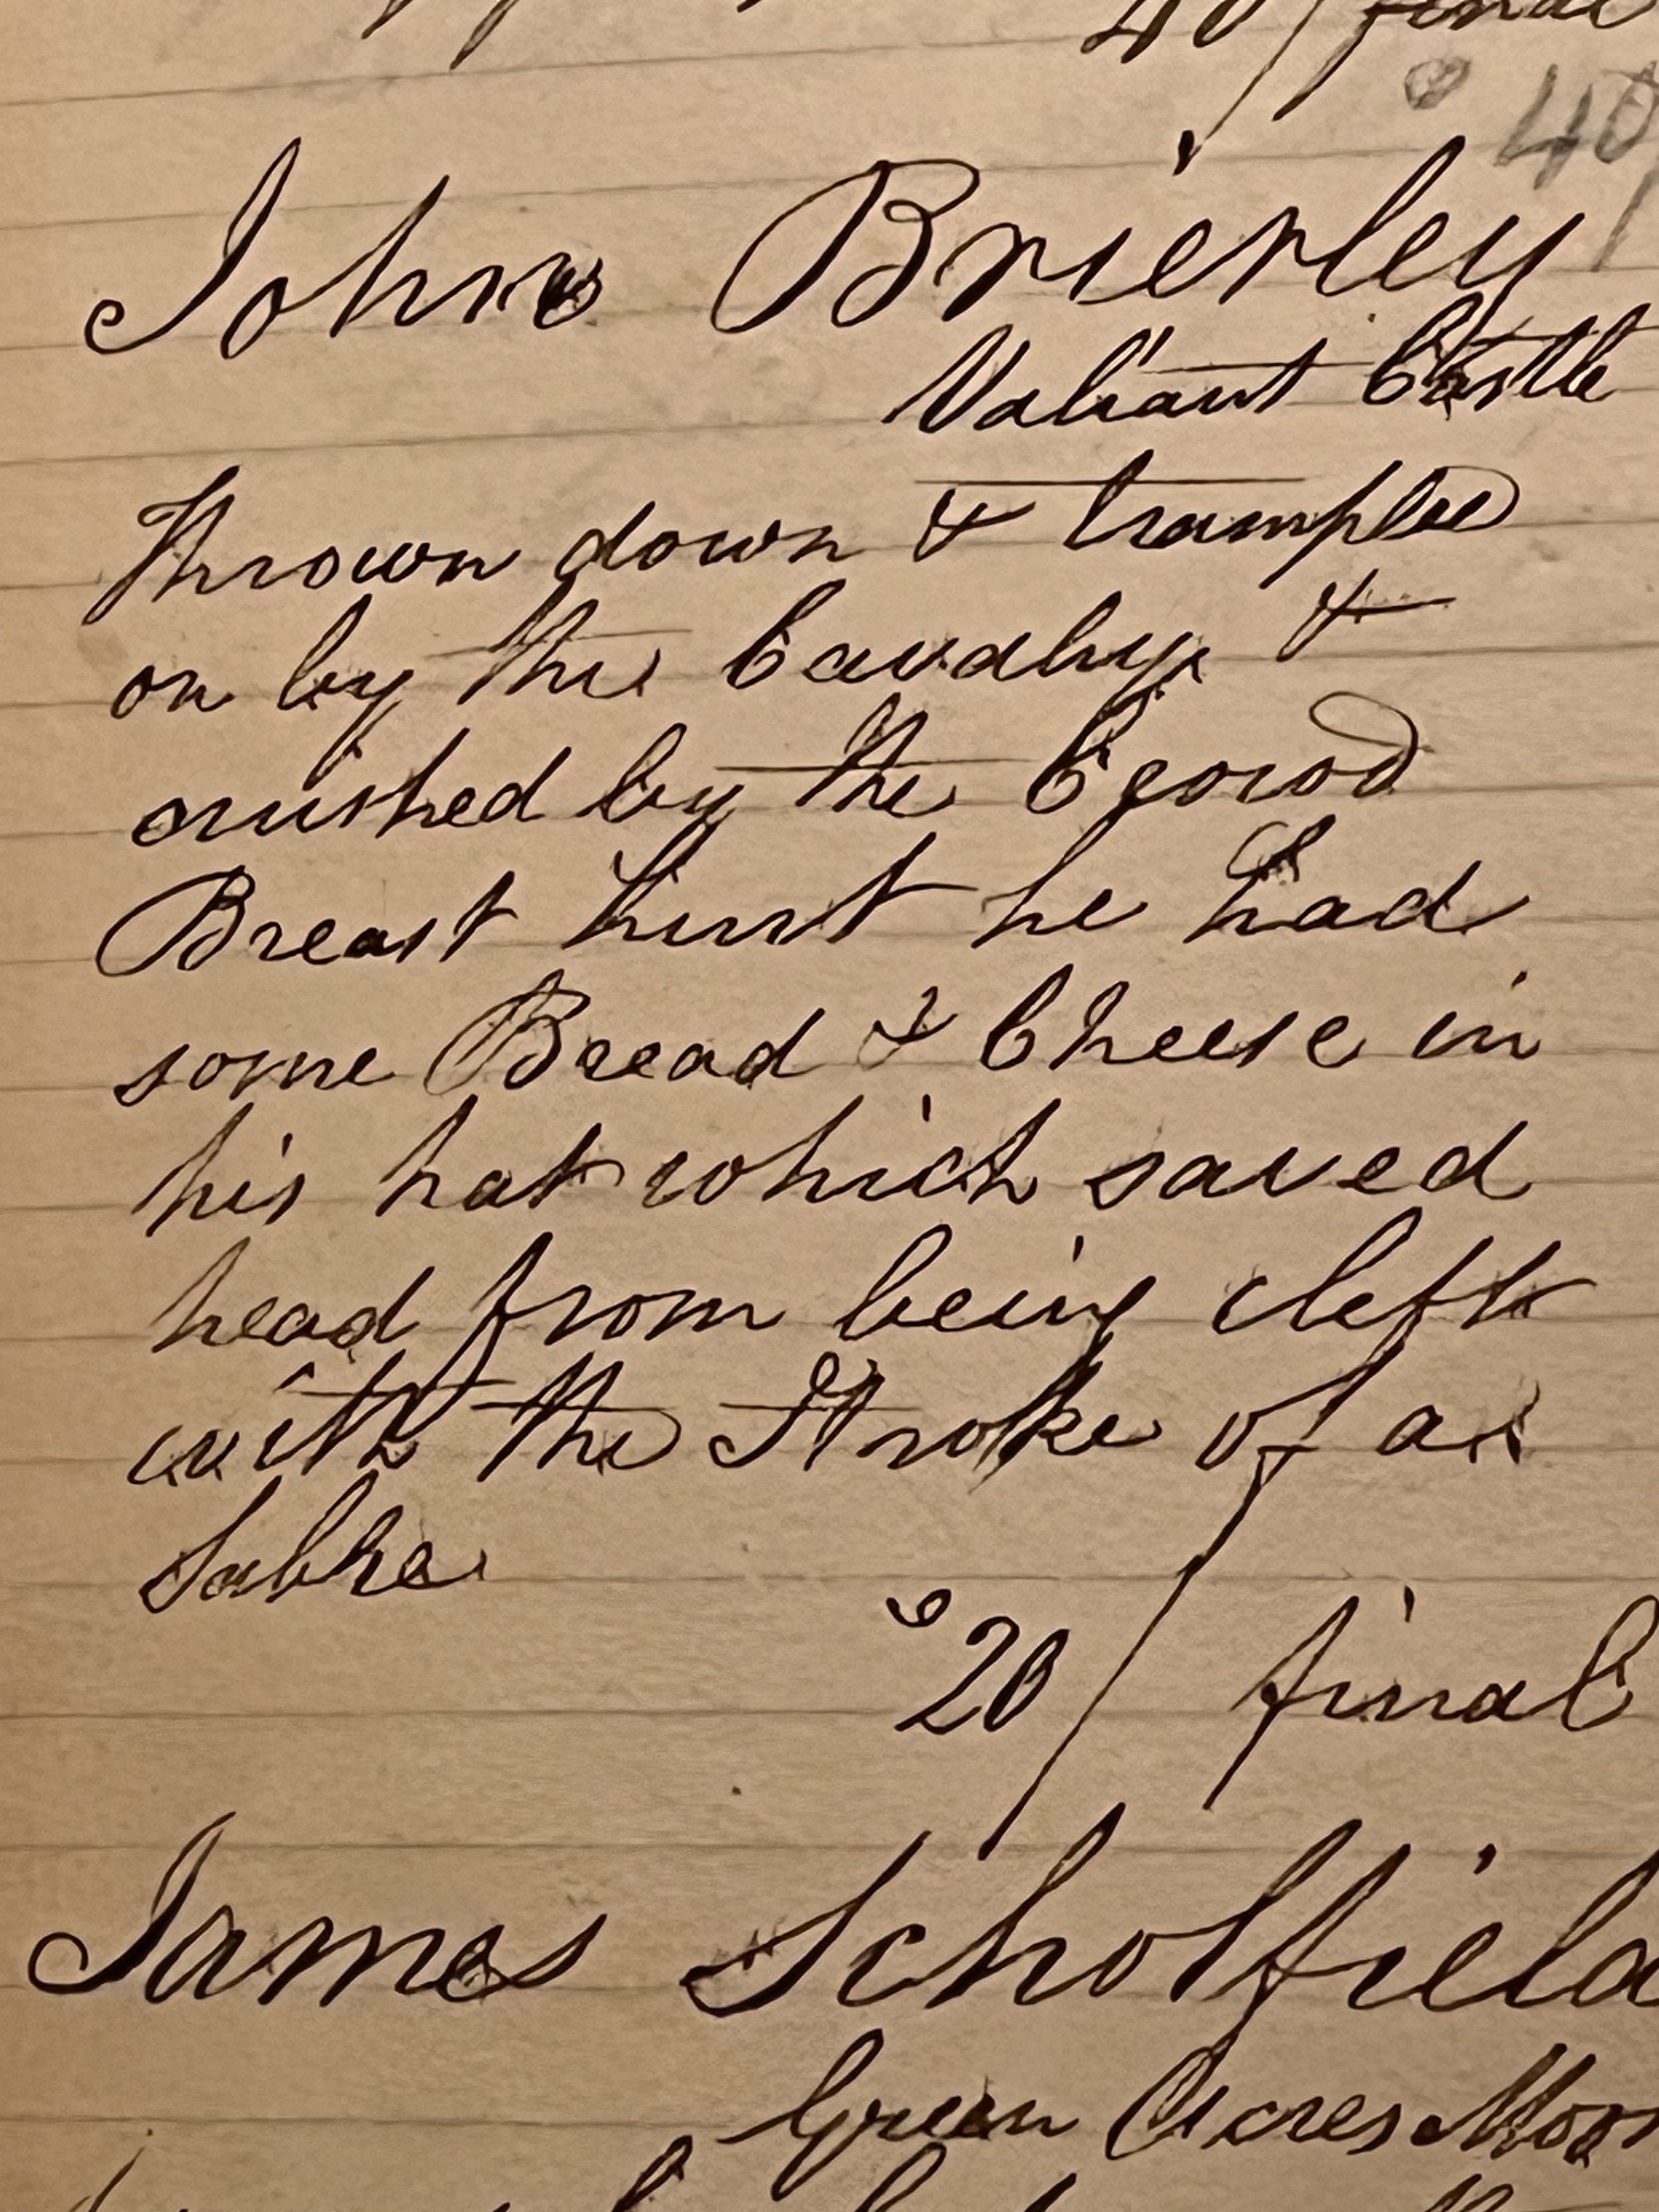 40/ final
40/
John Brierley
Valiant Castle
Thrown down & trampled
on by the Cavalry &
crushed by the Crowd
Breast hurt he had
some Bread & Cheese in
his hat which saved
head from being cleft
with the Stroke of a
Sabre
20/ final
James Scholfield
Green Acres Moor